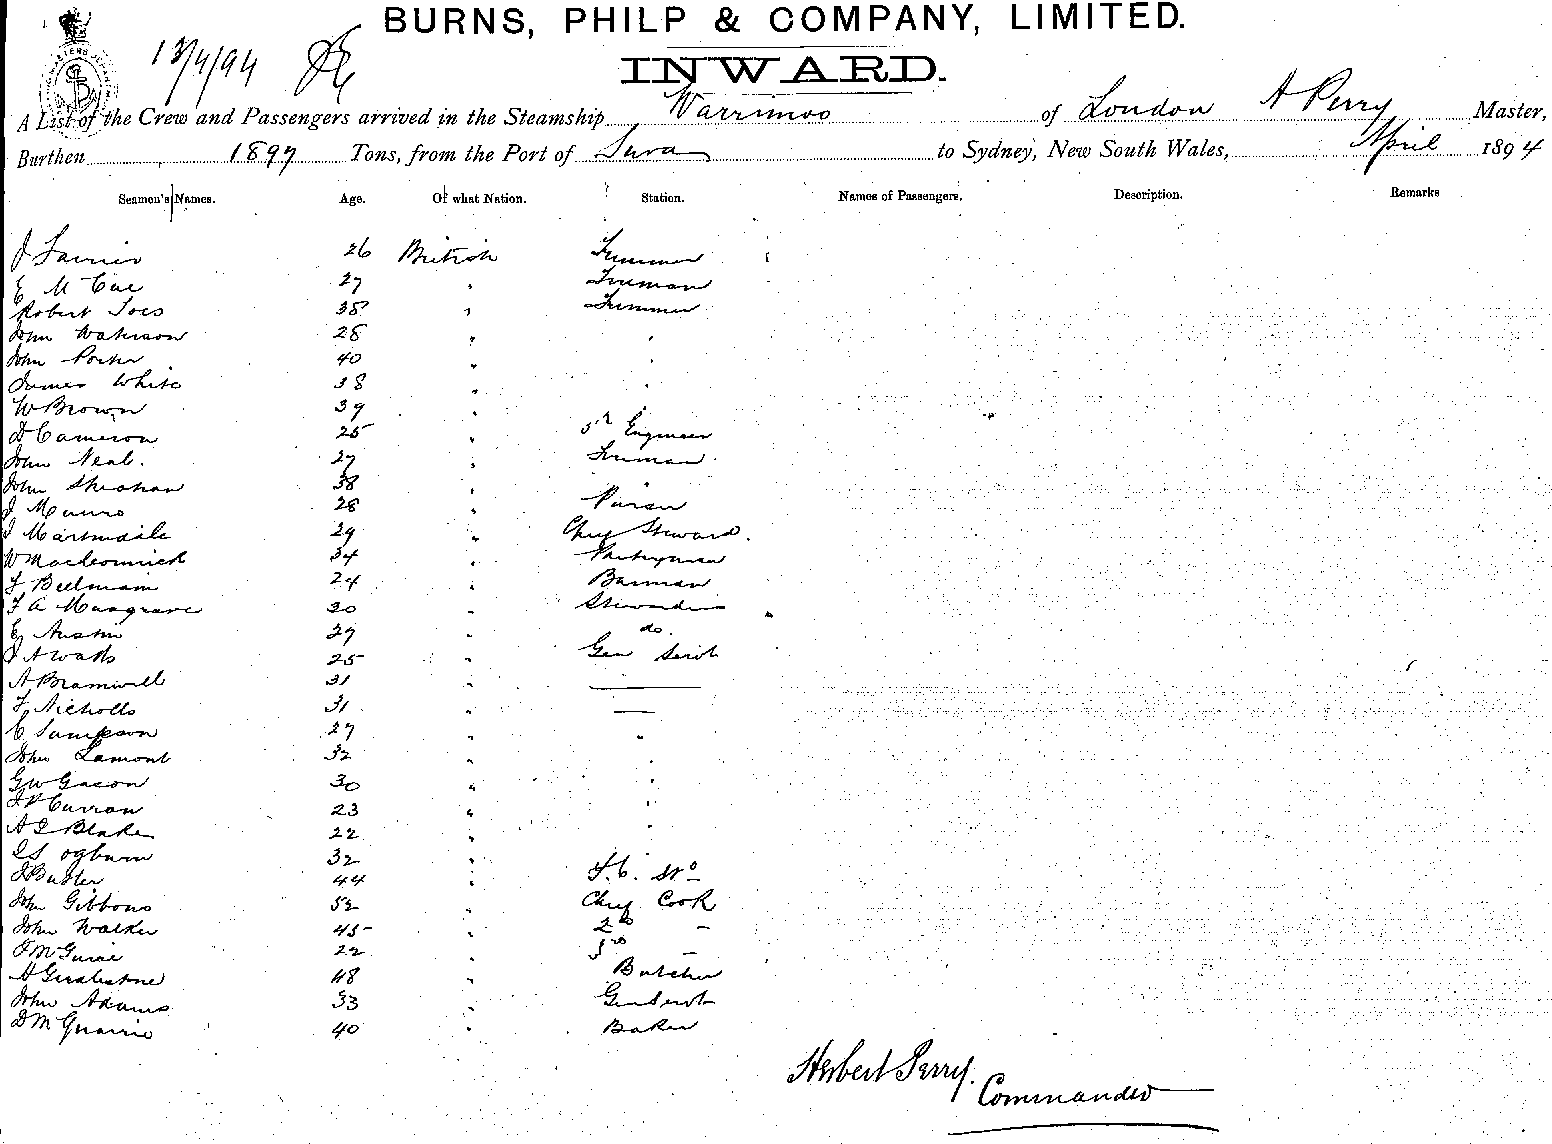 BURNS, PHILP & COMPANY, LIMITED.
13/4/94
INWARD.
A List of the Crew and Passengers arrived in the Steamship Warrimoo of London A Perry Master,
Burthen 1897 Tons, from the Port of Suva to Sydney, New South Wales, April 1894
Seamen's Names. Age. Of what Nation. Station. Names of Passengers. Description. Remarks
26 British Trimmer
27 " Fireman
Robert 38 " Trimmer
John Waterson 28 " "
John Porter 40 " "
James White 38 " "
W Brown 39 "
D Cameron 25 " 5th Engineer
John Neal. 27 " Fireman
John Sheahan 38 "
J Munro 28 " Purser
J Martindale 29 " Chief Steward.
W MacCormick 34 " Pantryman
F 24 " Barman
F A Musgrave 30 " Stewardess
E Austin 29 " do.
J A Watts 25 " Gen Servt
A Bramwell 31 "
F Nicholls 31 " —
C Sampson 27 " "
John Lamont 32 " "
G W Gascon 30 " "
J P Curran 23 " "
A E Blake 22 " "
Ogburn 32 "
J Butler 44 " F.C. Std
John Gibbons 52 " Chief Cook
John Walker 45 " 2nd —
J McGuire 22 " 3rd —
A Girdlestone 48 " Butcher
John Adams 33 " Gen Servt
D McQuarrie 40 " Baker
Herbert Perry.
Commander